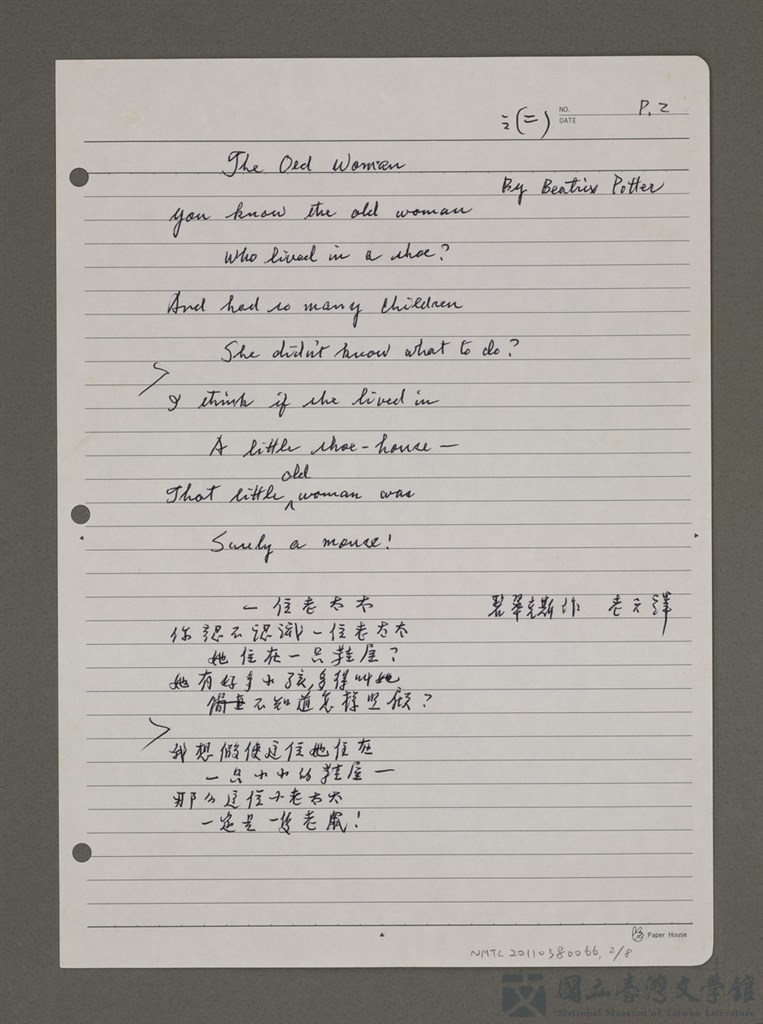 (二)
NO.
DATE
P. 2
The Old Woman
By Beatrix Potter
You know the old woman
Who lived in a shoe?
And had so many children
She didn't know what to do?
I think if she lived in
A little shoe-house—
That little old woman was
Surely a mouse!
一位老太太
碧翠克斯作 老六譯
你認不認識一位老太太
她住在一只鞋屋?
她有好多小孩,多得叫她
簡直不知道怎樣照顧?
我想假使這位她住在
一只小小的鞋屋—
那么這位小老太太
一定是一隻老鼠!
Paper House
NMTL 20110380066, 2/8
國立臺灣文學館
National Museum of Taiwan Literature